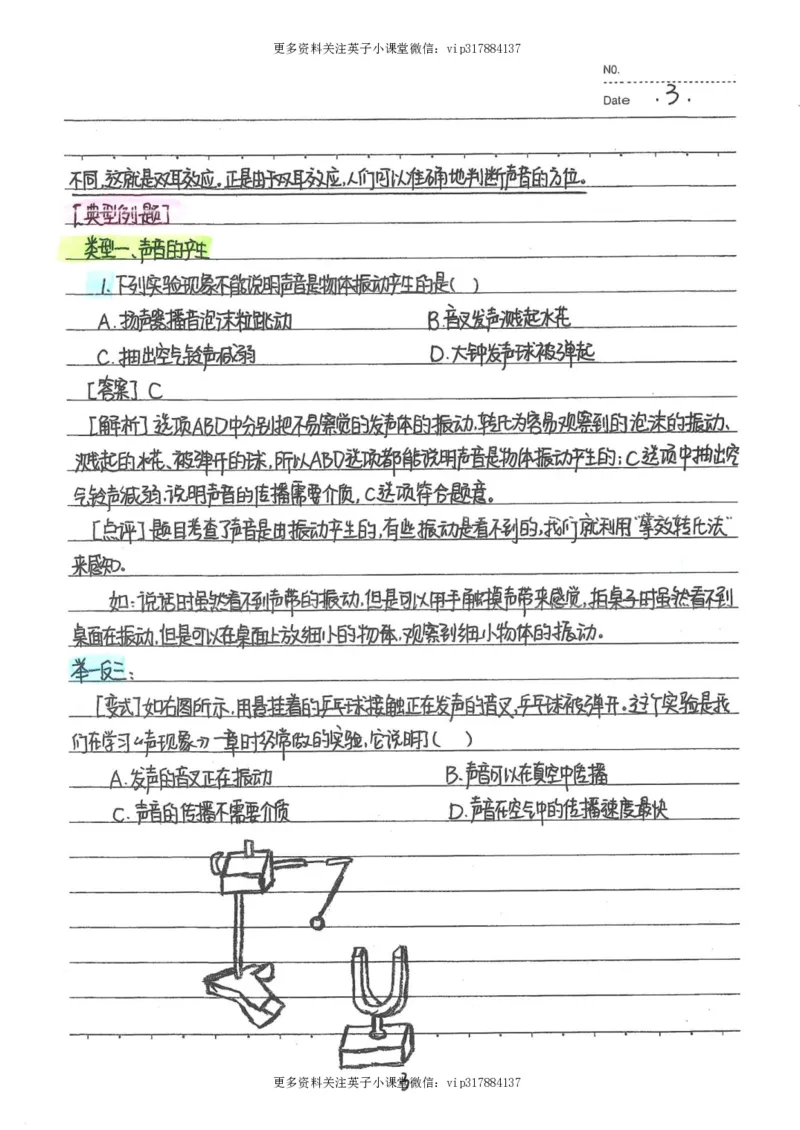 更多资料关注英子小课堂微信：vip317884137
NO.
Date .3.
不同,这就是双耳效应。正是由于双耳效应,人们可以准确地判断声音的方位。
[典型例题]
类型一、声音的产生
1.下列实验现象不能说明声音是物体振动产生的是( )
A.扬声器播音泡沫粒跳动 B.音叉发声溅起水花
C.抽出空气铃声减弱 D.大钟发声球被弹起
[答案] C
[解析] 选项ABD中分别把不易察觉的发声体的振动,转化为容易观察到的泡沫的振动、
溅起的水花、被弹开的球,所以ABD选项都能说明声音是物体振动产生的;C选项中抽出空
气铃声减弱,说明声音的传播需要介质,C选项符合题意。
[点评]题目考查了声音是由振动产生的,有些振动是看不到的,我们就利用“等效转化法”
来感知。
如:说话时虽然看不到声带的振动,但是可以用手触摸声带来感觉,拍桌子时虽然看不到
桌面在振动,但是可以在桌面上放细小的物体,观察到细小物体的振动。
举一反三:
[变式]如右图所示,用悬挂着的乒乓球接触正在发声的音叉,乒乓球被弹开。这个实验是我
们在学习《声现象》一章时经常做的实验,它说明了( )
A.发声的音叉正在振动 B.声音可以在真空中传播
C.声音的传播不需要介质 D.声音在空气中的传播速度最快
3
更多资料关注英子小课堂微信：vip317884137